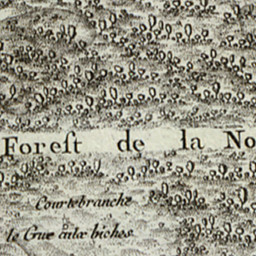 Foreſt de la No
Courtebranche
le Gué aux biches